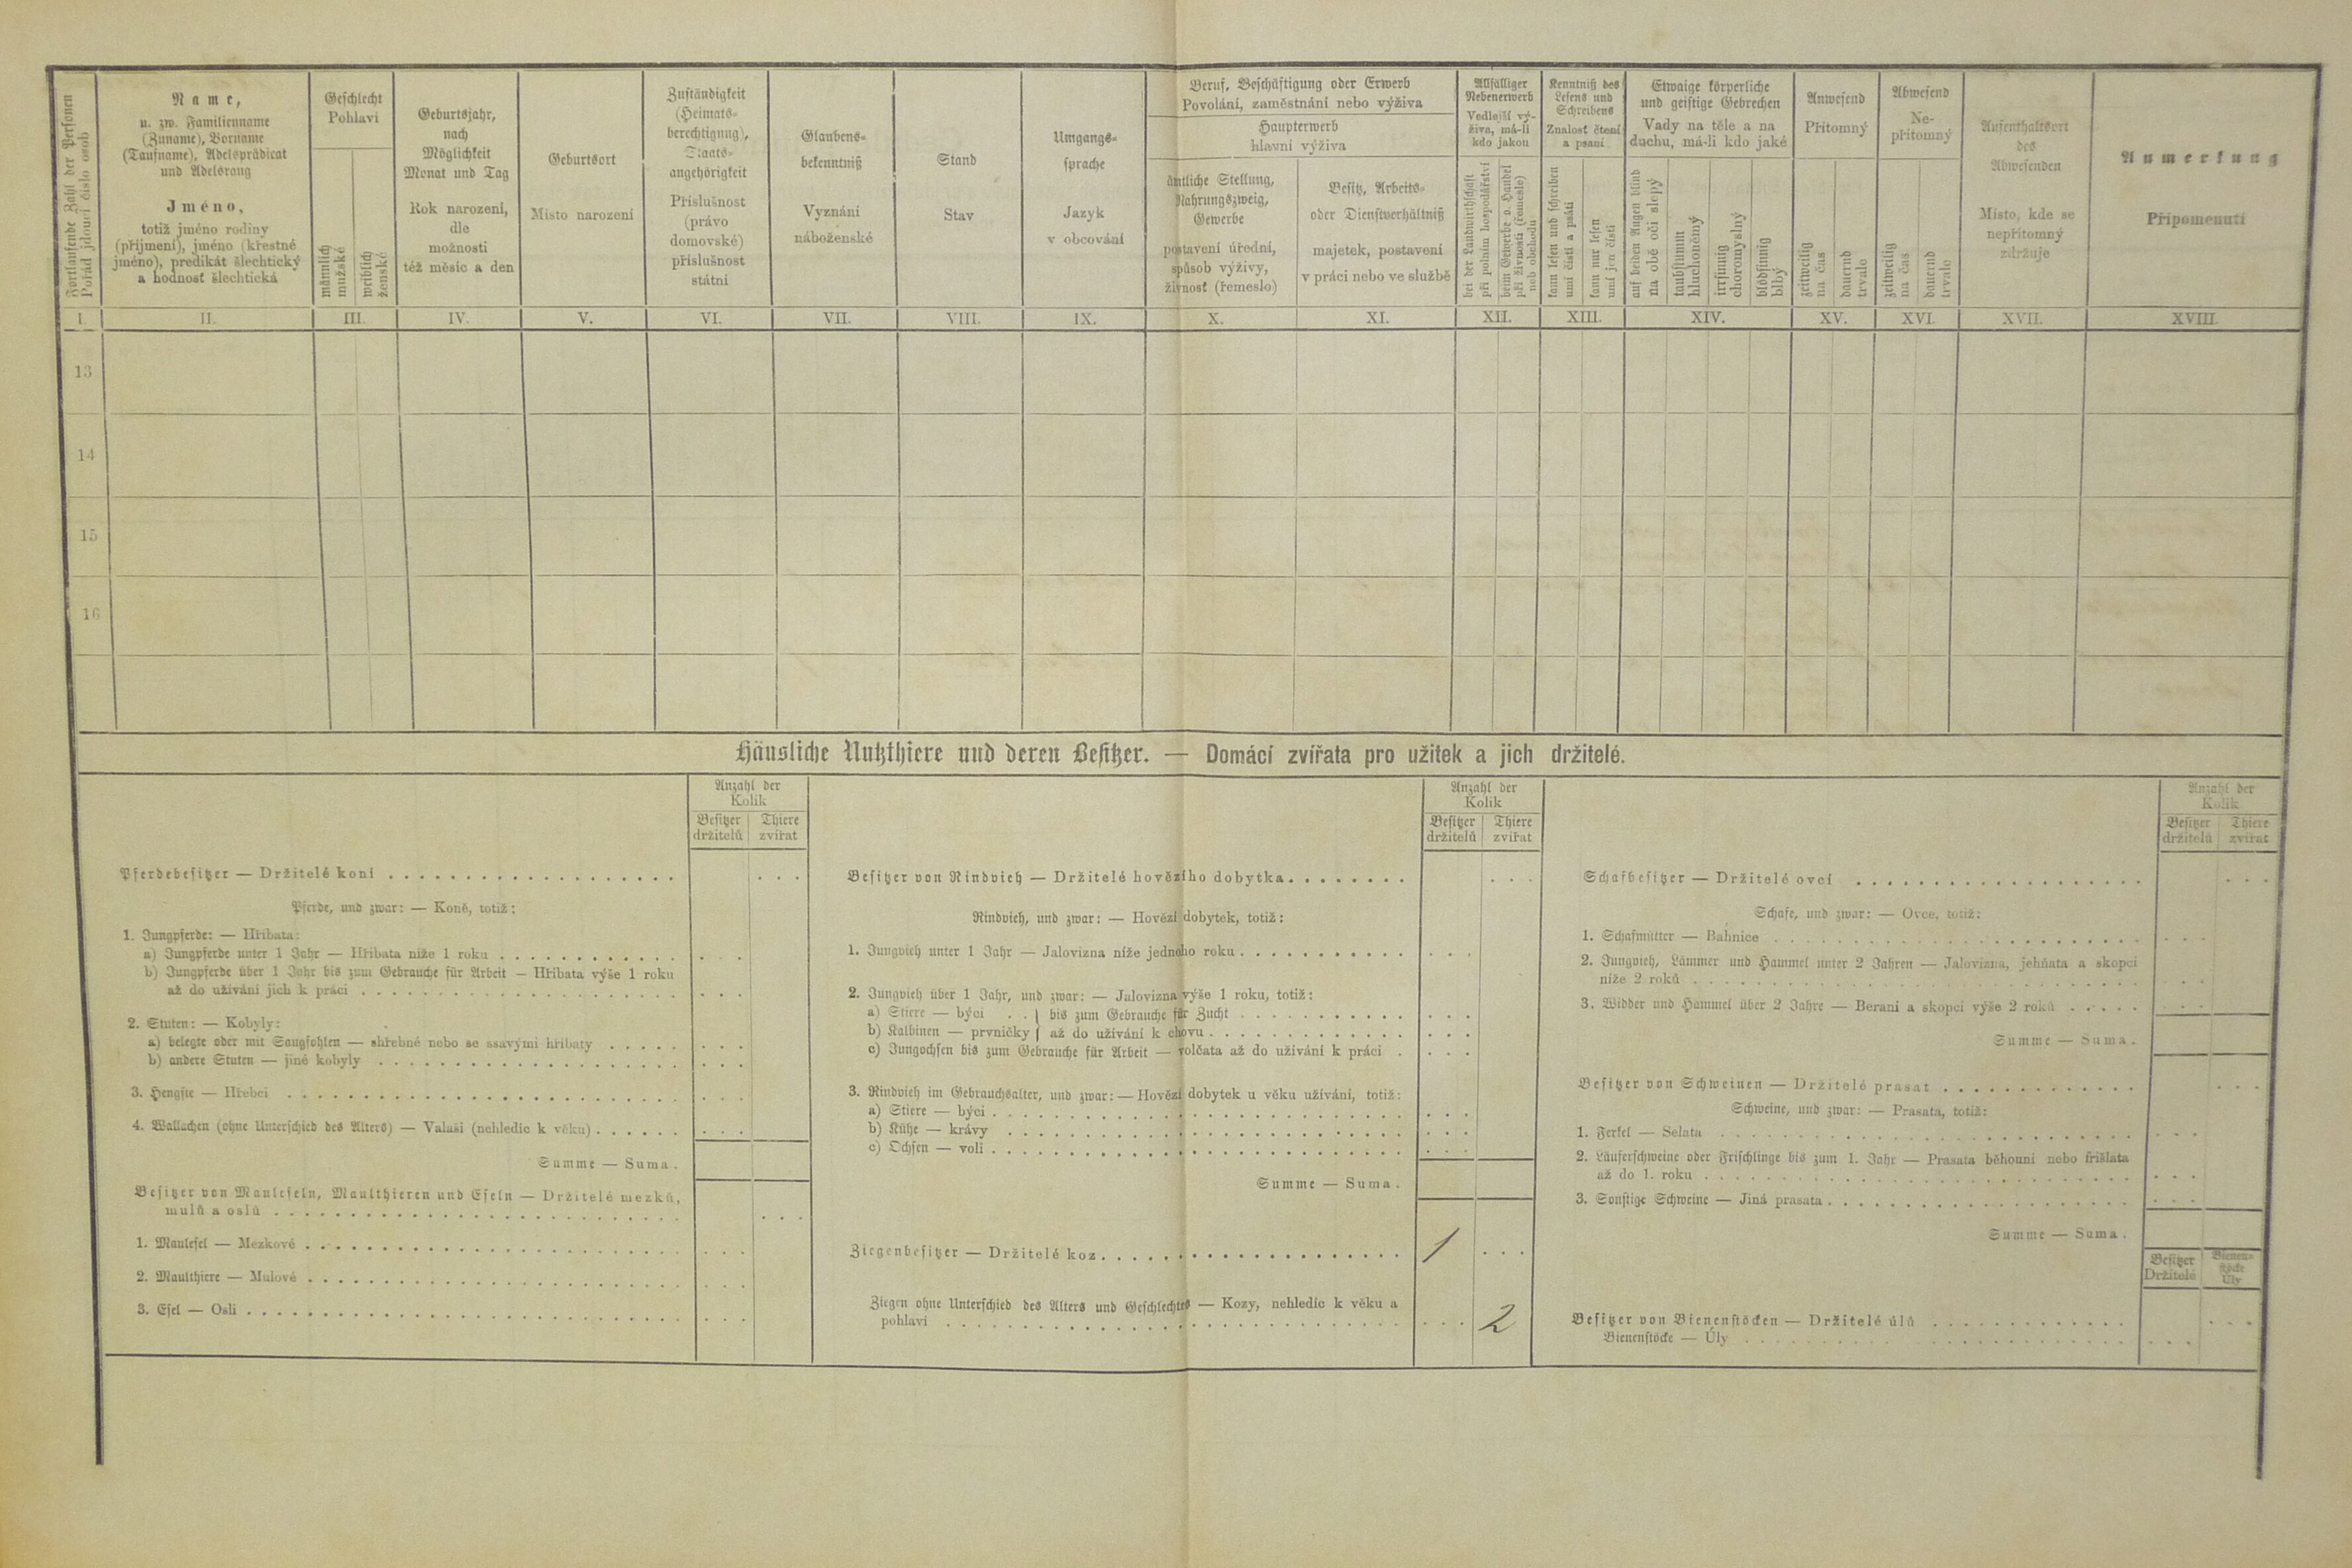 Fortlaufende Zahl der Personen
Pořad jdoucí číslo osob
Name,
u. zw. Familienname
(Zuname), Vorname
(Taufname), Adelsprädicat
und Adelsrang
Jméno,
totiž jméno rodiny
(příjmení), jméno (křestné
jméno), predikát šlechtický
a hodnosť šlechtická
Geschlecht
Pohlaví
männlich
mužské
weiblich
ženské
Geburtsjahr,
nach
Möglichkeit
Monat und Tag
Rok narození,
dle
možnosti
též měsíc a den
Geburtsort
Místo narození
Zuständigkeit
(Heimats-
berechtigung),
Staats-
angehörigkeit
Příslušnost
(právo
domovské)
příslušnost
státní
Glaubens-
bekenntniß
Vyznání
náboženské
Stand
Stav
Umgangs-
sprache
Jazyk
v obcování
Beruf, Beschäftigung oder Erwerb
Povolání, zaměstnání nebo výživa
Haupterwerb
hlavní výživa
ämtliche Stellung,
Nahrungszweig,
Gewerbe
postavení úřední,
spůsob výživy,
živnosť (řemeslo)
Besitz, Arbeits-
oder Dienstverhältniß
majetek, postavení
v práci nebo ve službě
Allfälliger
Nebenerwerb
Vedlejší vý-
živa, má-li
kdo jakou
bei der Landwirthschaft
při polním hospodářství
beim Gewerbe o. Handel
při živnosti (řemeslo)
neb obchodu
Kenntniß des
Lesens und
Schreibens
Znalosť čtení
a psaní
kann lesen und schreiben
umí čísti a psáti
kann nur lesen
umí jen čísti
Etwaige körperliche
und geistige Gebrechen
Vady na těle a na
duchu, má-li kdo jaké
auf beiden Augen blind
na obě oči slepý
taubstumm
hluchoněmý
irrsinnig
choromyslný
blödsinnig
blbý
Anwesend
Přítomný
zeitweilig
na čas
dauernd
trvale
Abwesend
Ne-
přítomný
zeitweilig
na čas
dauernd
trvale
Aufenthaltsort
des
Abwesenden
Místo, kde se
nepřítomný
zdržuje
Anmerkung
Připomenutí
I. II. III. IV. V. VI. VII. VIII. IX. X. XI. XII. XIII. XIV. XV. XVI. XVII. XVIII.
13
14
15
16
Häusliche Nutzthiere und deren Besitzer. — Domácí zvířata pro užitek a jich držitelé.
Anzahl der
Kolik
Besitzer Thiere
držitelů zvířat
Pferdebesitzer — Držitelé koní . . . . . . . . . . . . . . . . . . .
Pferde, und zwar: — Koně, totiž:
1. Jungpferde: — Hříbata:
a) Jungpferde unter 1 Jahr — Hříbata níže 1 roku . . . . . . . . . . . .
b) Jungpferde über 1 Jahr bis zum Gebrauche für Arbeit — Hříbata výše 1 roku
až do užívání jich k práci . . . . . . . . . . . . . . . . . . . . .
2. Stuten: — Kobyly:
a) belegte oder mit Saugfohlen — shřebné nebo se ssavými hříbaty . . . . .
b) andere Stuten — jiné kobyly . . . . . . . . . . . . . . . . . . . .
3. Hengste — Hřebci . . . . . . . . . . . . . . . . . . . . . . . . . .
4. Wallachen (ohne Unterschied des Alters) — Valaši (nehledíc k věku) . . . . . .
Summe — Suma .
Besitzer von Mauleseln, Maulthieren und Eseln — Držitelé mezků,
mulů a oslů . . . . . . . . . . . . . . . . . . . . . . . . . . .
1. Maulesel — Mezkové . . . . . . . . . . . . . . . . . . . . . . . . .
2. Maulthiere — Mulové . . . . . . . . . . . . . . . . . . . . . . . . .
3. Esel — Osli . . . . . . . . . . . . . . . . . . . . . . . . . . . . .
Anzahl der
Kolik
Besitzer Thiere
držitelů zvířat
Besitzer von Rindvieh — Držitelé hovězího dobytka . . . . . . . .
Rindvieh, und zwar: — Hovězí dobytek, totiž:
1. Jungvieh unter 1 Jahr — Jalovizna níže jednoho roku . . . . . . . . . . .
2. Jungvieh über 1 Jahr, und zwar: — Jalovizna výše 1 roku, totiž:
a) Stiere — býci . . } bis zum Gebrauche für Zucht . . . . . . . . . . .
b) Kalbinen — prvničky } až do užívání k chovu . . . . . . . . . . . . .
c) Jungochsen bis zum Gebrauche für Arbeit — volčata až do užívání k práci .
3. Rindvieh im Gebrauchsalter, und zwar: — Hovězí dobytek u věku užívání, totiž:
a) Stiere — býci . . . . . . . . . . . . . . . . . . . . . . . . . . .
b) Kühe — krávy . . . . . . . . . . . . . . . . . . . . . . . . . .
c) Ochsen — voli . . . . . . . . . . . . . . . . . . . . . . . . . . .
Summe — Suma .
Ziegenbesitzer — Držitelé koz . . . . . . . . . . . . . . . . . . . . 1
Ziegen ohne Unterschied des Alters und Geschlechtes — Kozy, nehledíc k věku a
pohlaví . . . . . . . . . . . . . . . . . . . . . . . . . . . . . . 2
Anzahl der
Kolik
Besitzer Thiere
držitelů zvířat
Schafbesitzer — Držitelé ovcí . . . . . . . . . . . . . . . . . . .
Schafe, und zwar: — Ovce, totiž:
1. Schafmütter — Bahnice . . . . . . . . . . . . . . . . . . . . . . . .
2. Jungvieh, Lämmer und Hammel unter 2 Jahren — Jalovizna, jehňata a skopci
níže 2 roků . . . . . . . . . . . . . . . . . . . . . . . . . . . . .
3. Widder und Hammel über 2 Jahre — Berani a skopci výše 2 roků . . . . .
Summe — Suma .
Besitzer von Schweinen — Držitelé prasat . . . . . . . . . . . . .
Schweine, und zwar: — Prasata, totiž:
1. Ferkel — Selata . . . . . . . . . . . . . . . . . . . . . . . . . . .
2. Läuferschweine oder Frischlinge bis zum 1. Jahr — Prasata běhouni nebo frišlata
až do 1. roku . . . . . . . . . . . . . . . . . . . . . . . . . . . .
3. Sonstige Schweine — Jiná prasata . . . . . . . . . . . . . . . . . . . .
Summe — Suma .
Besitzer Bienen-
stöcke
Držitelé Úly
Besitzer von Bienenstöcken — Držitelé úlů . . . . . . . . . . . . .
Bienenstöcke — Úly . . . . . . . . . . . . . . . . . . . . . . . . .